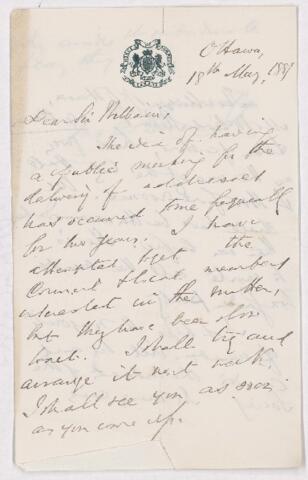 Ottawa,
18th May, 1889
Dear Sir William,
The idea of having
a public meeting for the
delivery of addresses
has occurred to me frequently
for two years. I have
attempted to get the
Council & local members
interested in the matter,
but they have been slow
to act. I shall try and
arrange it next week.
I shall see you as soon
as you come up.